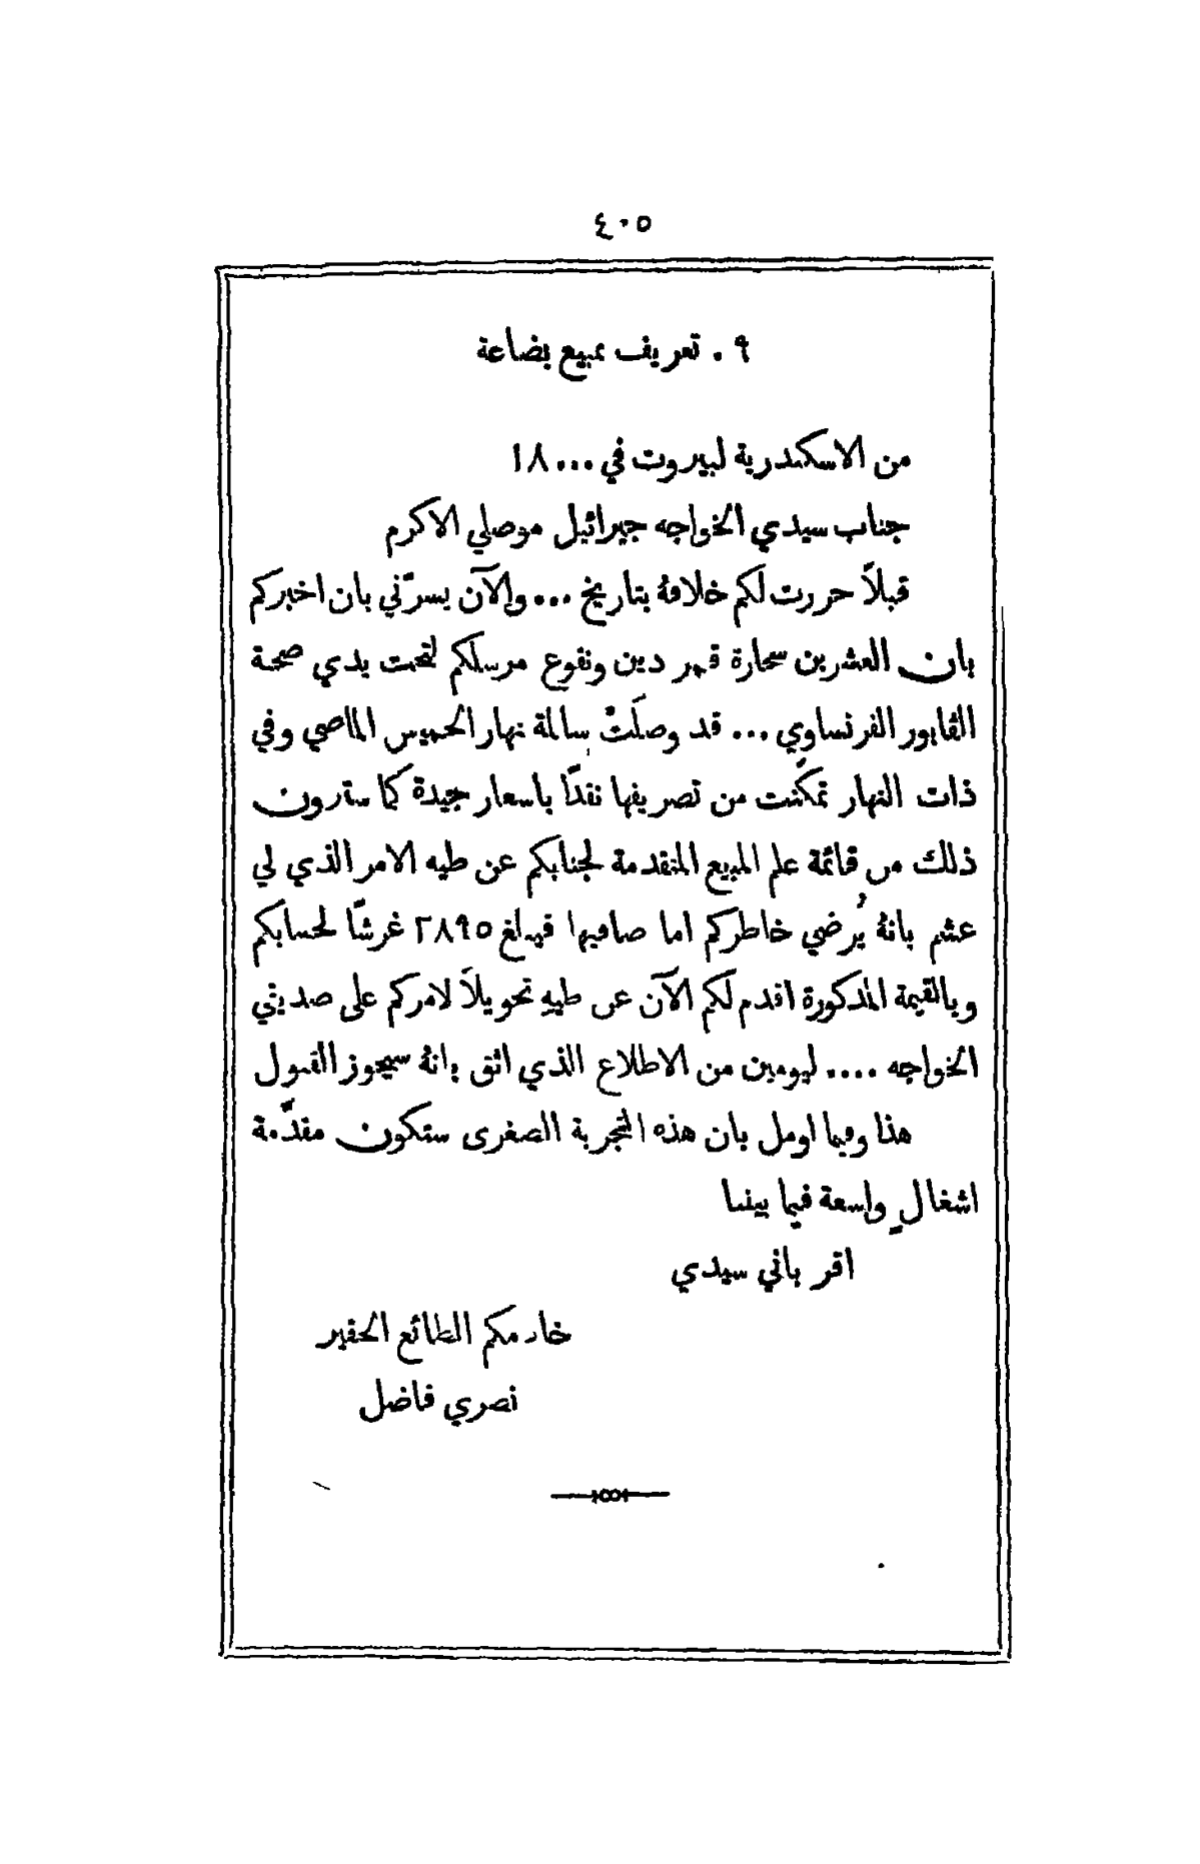 ٤٠٥
٩ . تعريف بمبيع بضاعة
من الاسكندرية لبيروت في ...١٨
جناب سيدي الخواجه جبرائيل موصلي الاكرم
قبلاً حررت لكم خلافهُ بتاريخ ... والآن يسرّني بان اخبركم
بان العشرين سحارة قمر دين ونقوع مرسلكم لتحت يدي صحبة
الڤابور الفرنساوي ... قد وصلَتْ سالمة نهار الخميس الماضي وفي
ذات النهار تمكَّنت من تصريفها نقدًا باسعار جيدة كما سترون
ذلك من قائمة علم المبيع المتقدمة لجنابكم عن طيه الامر الذي لي
عشم بانهُ يُرضي خاطركم اما صافيها فيبلغ ٢٨٩٥ غرشًا لحسابكم
وبالقيمة المذكورة اقدم لكم الآن عن طيهِ تحويلاً لامركم على صديقي
الخواجه .... ليومين من الاطلاع الذي اثق بانهُ سيحوز القبول
هذا وبما اومل بان هذه التجربة الصغرى ستكون مقدّمة
اشغالٍ واسعة فيما بيننا
اقر باني سيدي
خادمكم الطائع الحقير
نصري فاضل